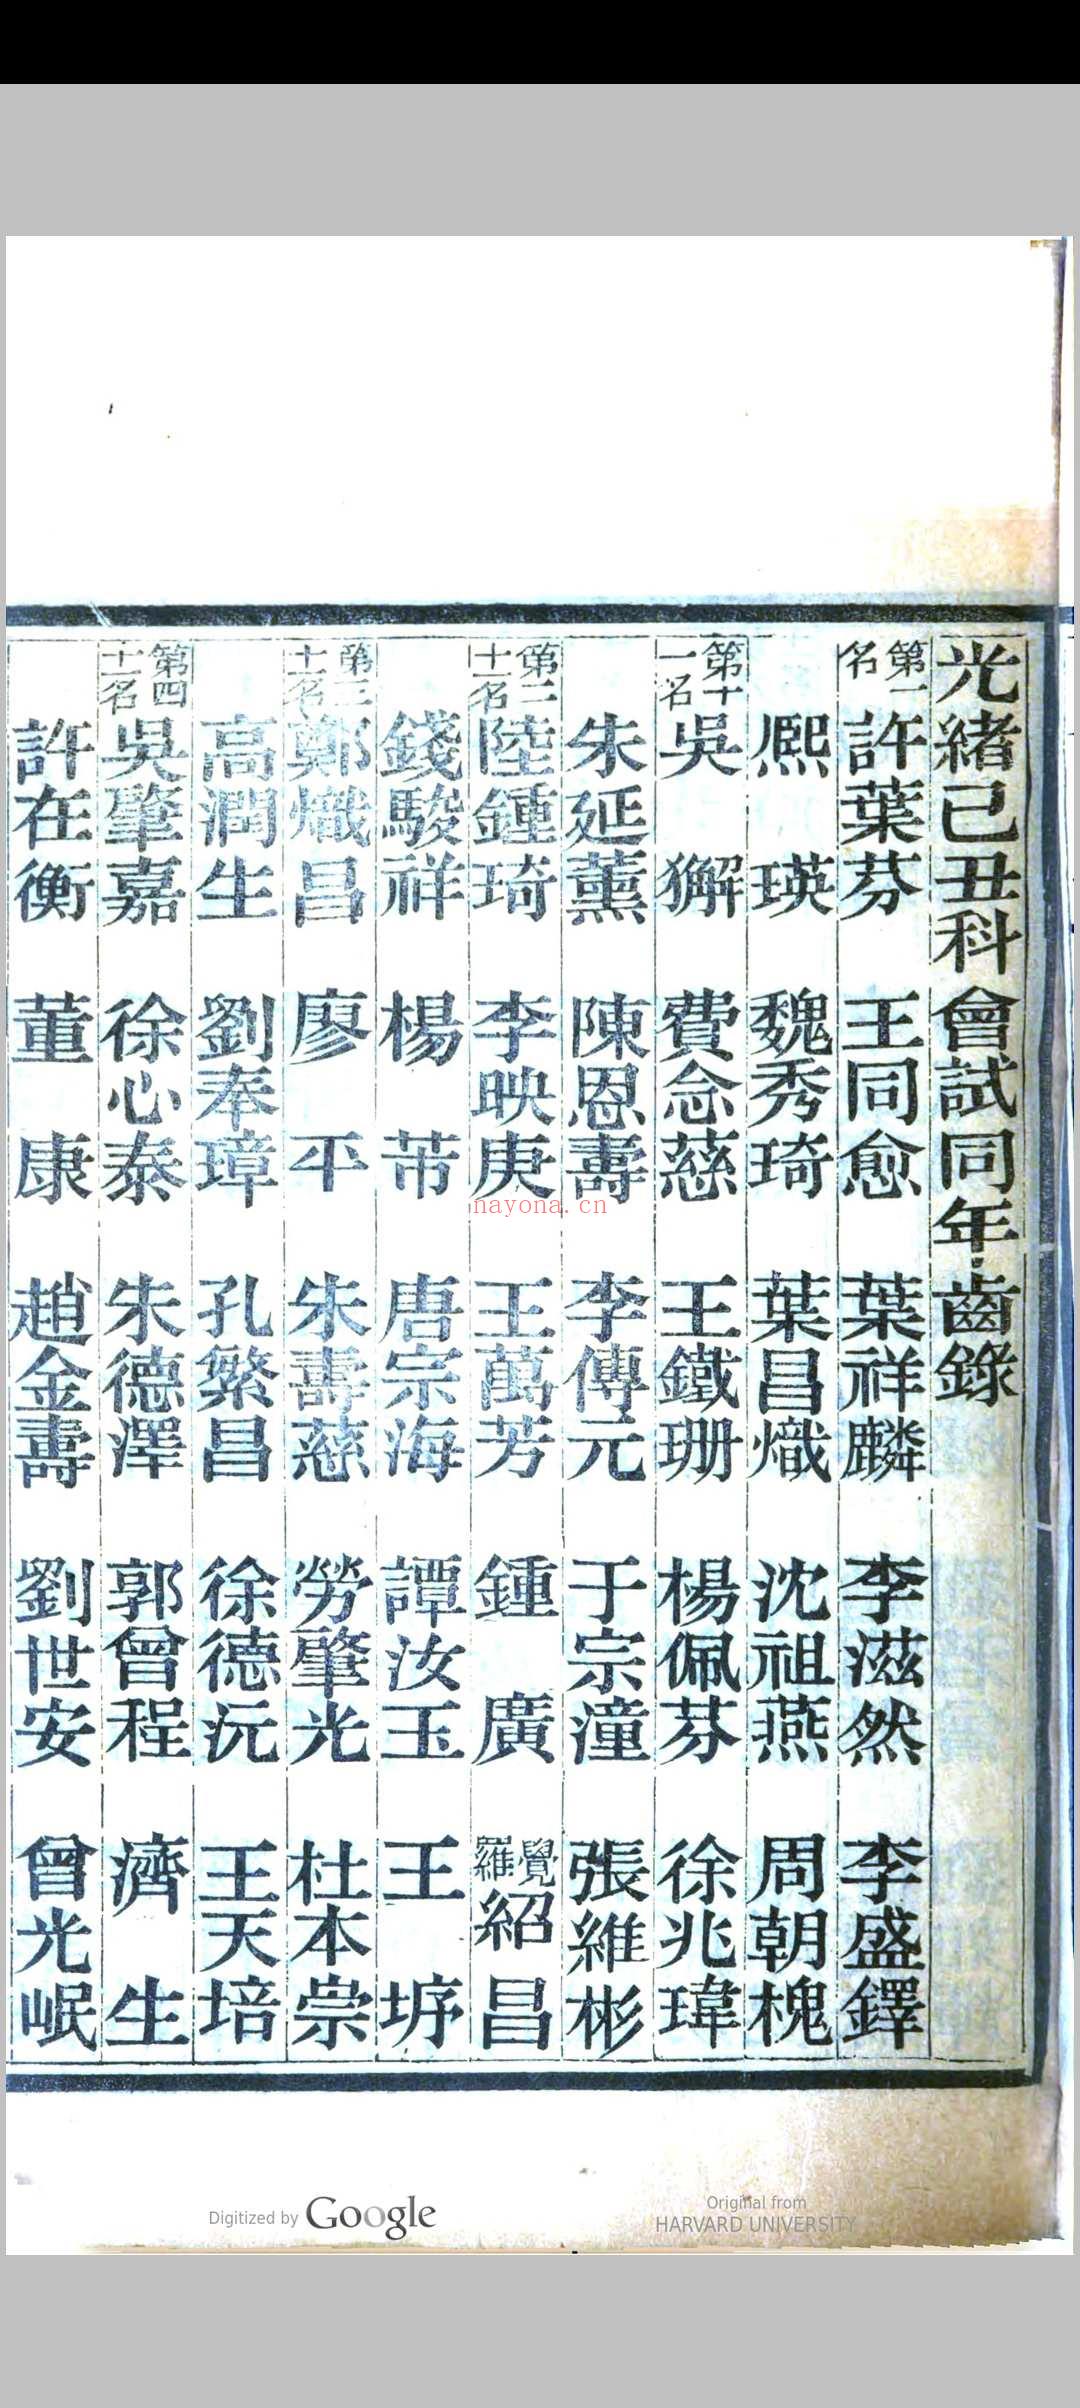 光緒己丑科會試同年齒錄
第一名 許葉芬 王同愈 葉祥麟 李滋然 李盛鐸
熈瑛 魏秀琦 葉昌熾 沈祖燕 周朝槐
第十一名 吳獬 費念慈 王鐵珊 楊佩芬 徐兆瑋
朱延薰 陳恩壽 李傳元 于宗潼 張維彬
第二十一名 陸鍾琦 李映庚 王萬芳 鍾廣 覺羅紹昌
錢駿祥 楊芾 唐宗海 譚汝玉 王垿
第三十一名 鄭熾昌 廖平 朱壽慈 勞肇光 杜本崇
高潤生 劉奉璋 孔繁昌 徐德沅 王天培
第四十一名 吳肇嘉 徐心泰 朱德澤 郭曾程 濟生
許在衡 董康 趙金壽 劉世安 曾光岷
nayona.cn
Digitized by Google
Original from
HARVARD UNIVERSITY